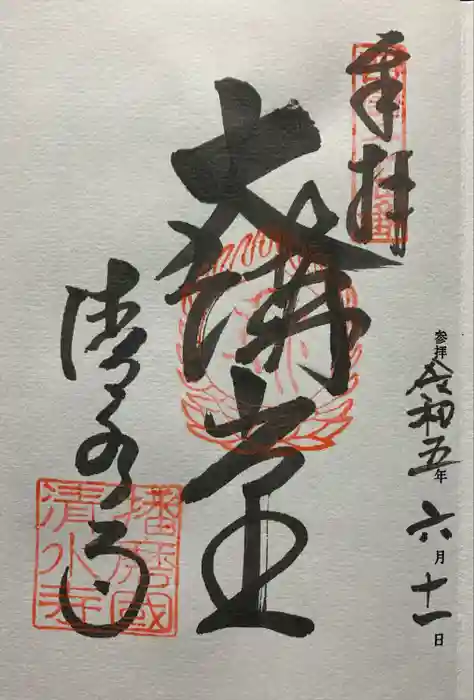 参拝 令和五年 六月十一日
奉拝
大講堂
清水寺
播磨國
清水寺